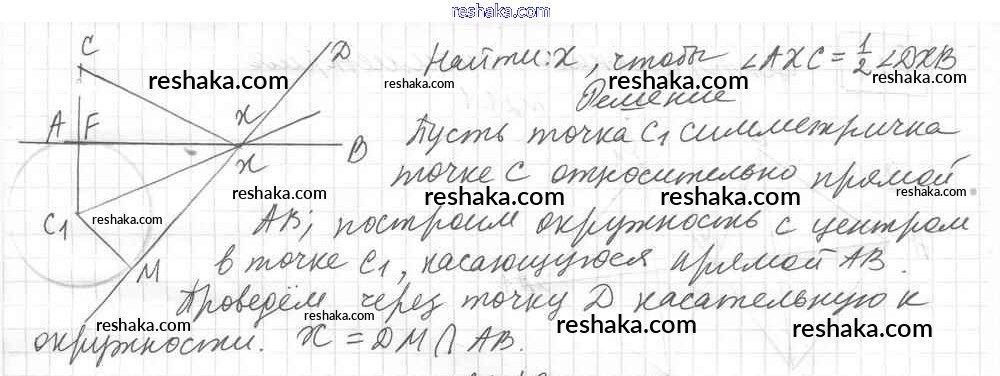 www.reshaka.com
Найти: X, чтобы ∠AXC = 1/2 ∠DXB
Решение
Пусть точка C₁ симметрична
точке C относительно прямой
AB; построим окружность с центром
в точке C₁, касающуюся прямой AB.
Проведём через точку D касательную к
окружности. X = DM ∩ AB.
C
D
A F
x
x
B
C₁
M
reshaka.com
reshaka.com
reshaka.com
reshaka.com
reshaka.com
reshaka.com
reshaka.com
reshaka.com
reshaka.com
reshaka.com
reshaka.com
reshaka.com
reshaka.com